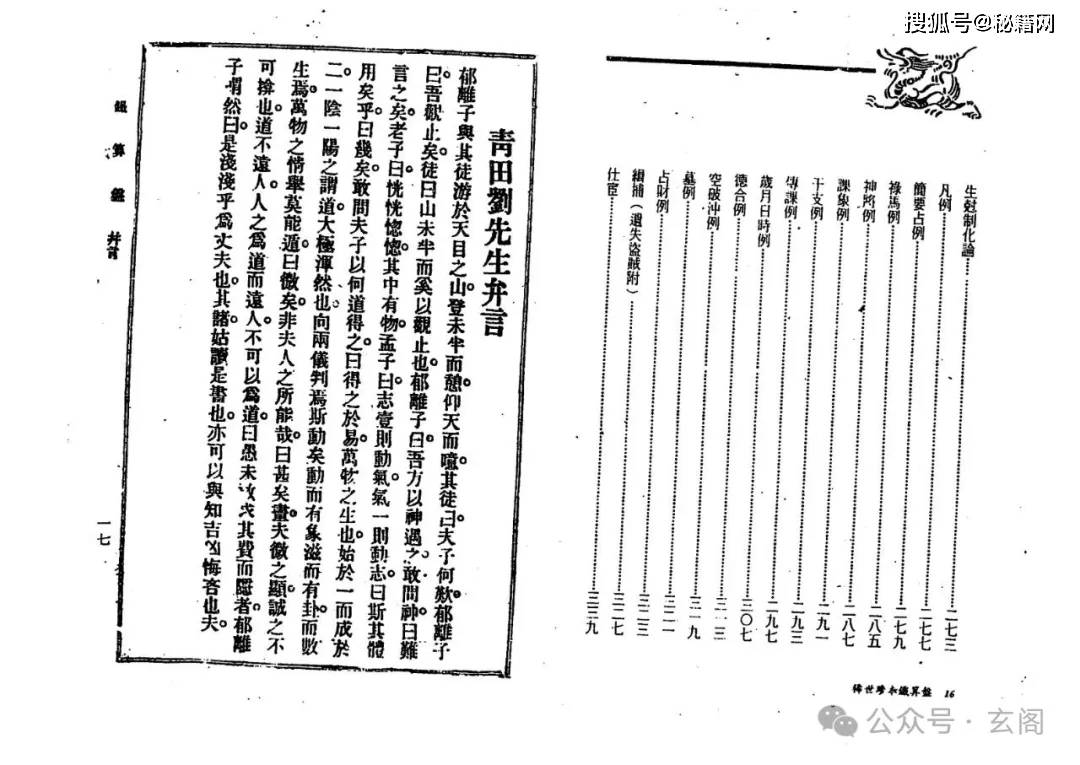 搜狐号@秘籍网
生尅制化論 二七三
凡例 二七七
簡要占例 二七七
祿馬例 二七九
神將例 二八五
課象例 二八七
干支例 二九一
傳課例 二九三
歲月日時例 二九七
德合例 三〇七
空破沖例 三一三
墓例 三一九
占財例 三二一
續補（遺失盜賊附） 三二三
仕宦 三二七
三三九
稀世珍本鐵算盤 16
青田劉先生弁言
郁離子與其徒游於天目之山。登未半而憩。仰天而噫。其徒曰。夫子何歎。郁離子
曰。吾歎止矣。徒曰。山未半而奚以觀止也。郁離子曰。吾方以神遇之。敢問神。曰難
言之矣。老子曰。恍恍惚惚。其中有物。孟子曰。志壹則動氣。氣一則動志。曰斯其體
用矣乎。曰幾矣。敢問夫子以何道得之。曰得之於易。萬物之生也。始於一而成於
二。一陰一陽之謂。道大極渾然也。向兩儀判焉。斯動矣。動而有象。滋而有卦。而數
生焉。萬物之情。舉莫能遁。曰微矣。非夫人之所能哉。曰甚矣。盡夫微之顯。誠之不
可揜也。道不遠人。人之爲道而遠人。不可以爲道。曰愚未敢求其費而隱者。郁離
子喟然曰。是淺淺乎爲丈夫也。其諸姑讀是書也。亦可以與知吉凶悔吝也夫。
鐵算盤 弁言
一七
公众号·玄阁